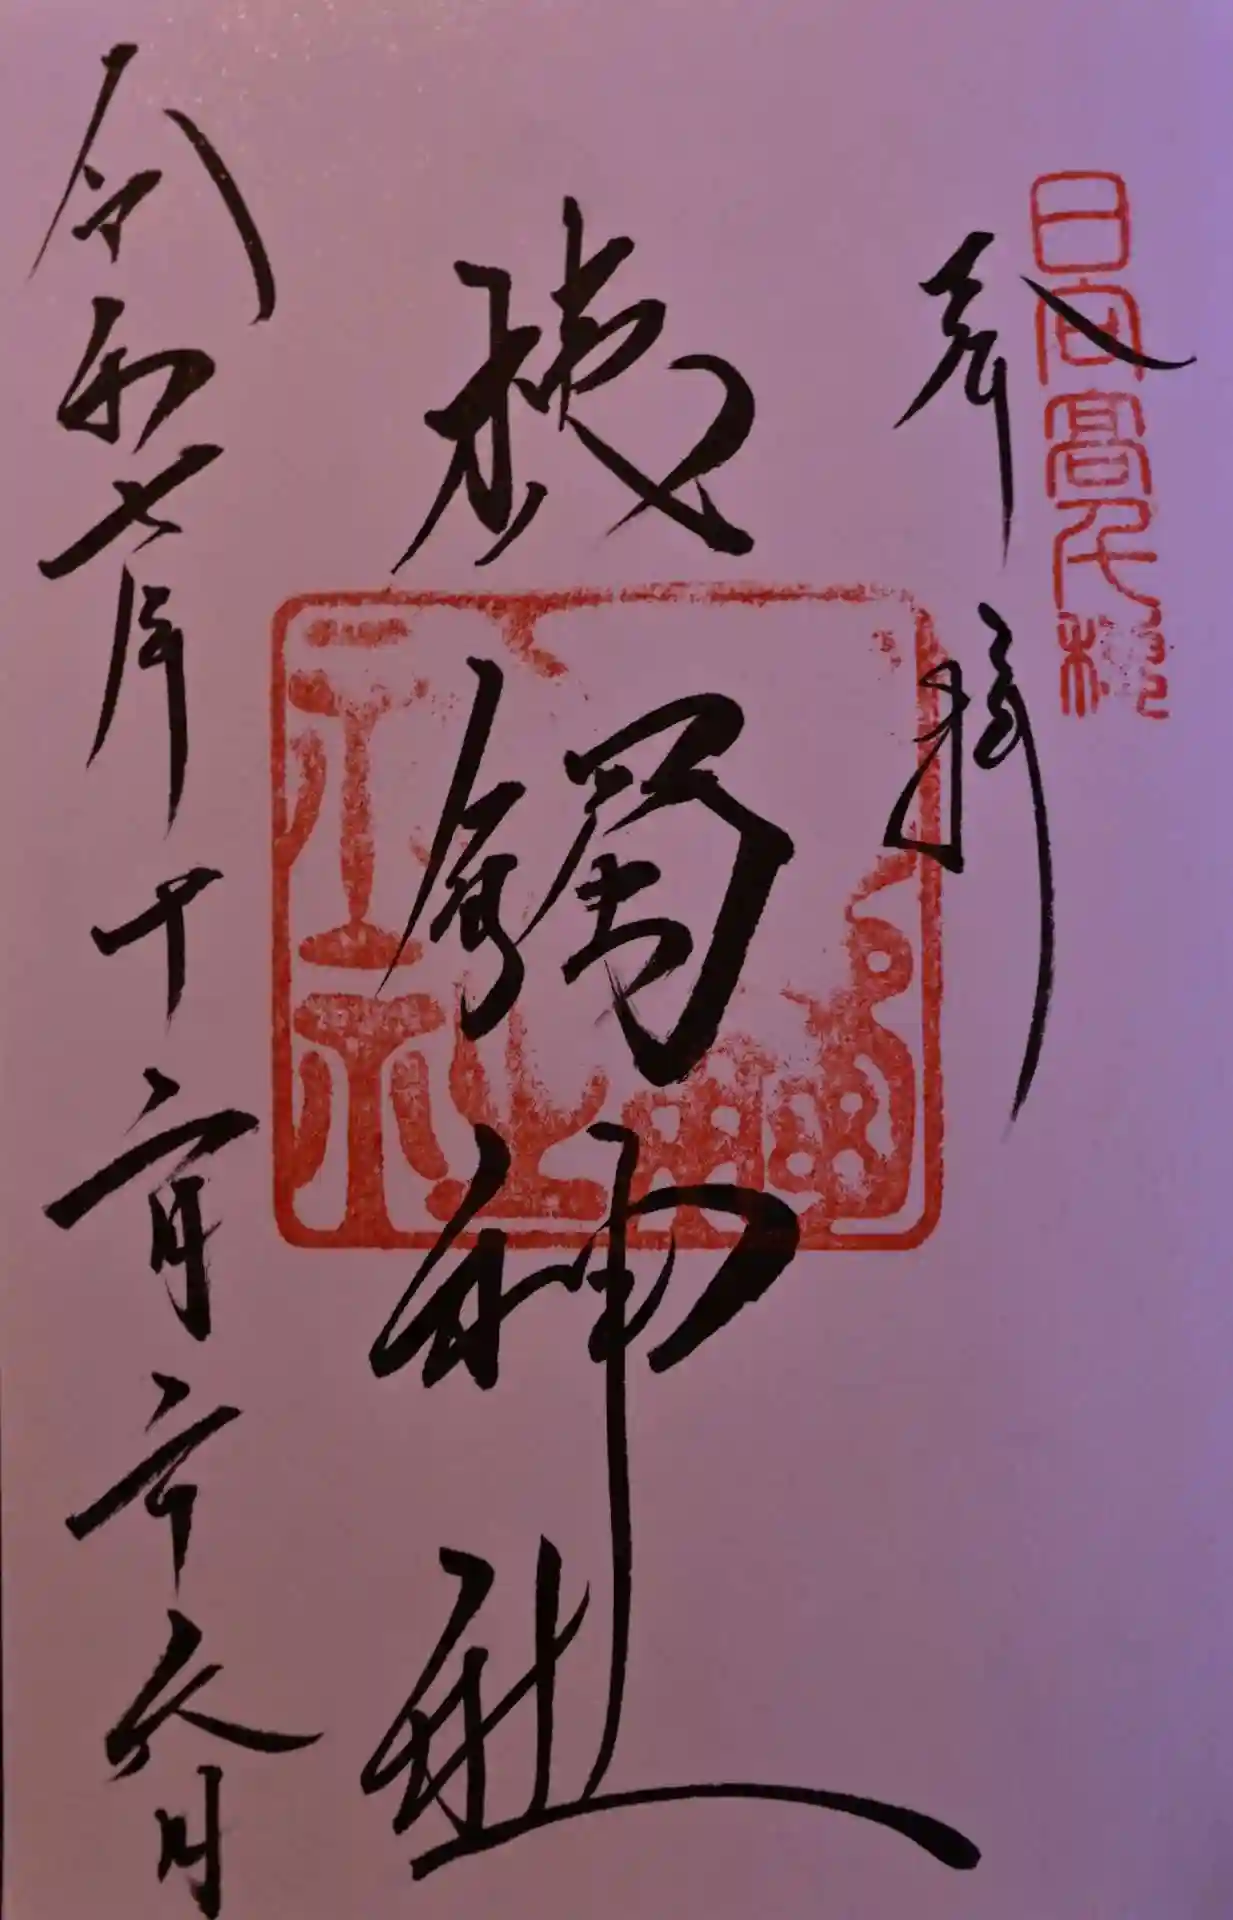 日向高千穂
奉拝
槵觸神社
令和七年十二月二十八日